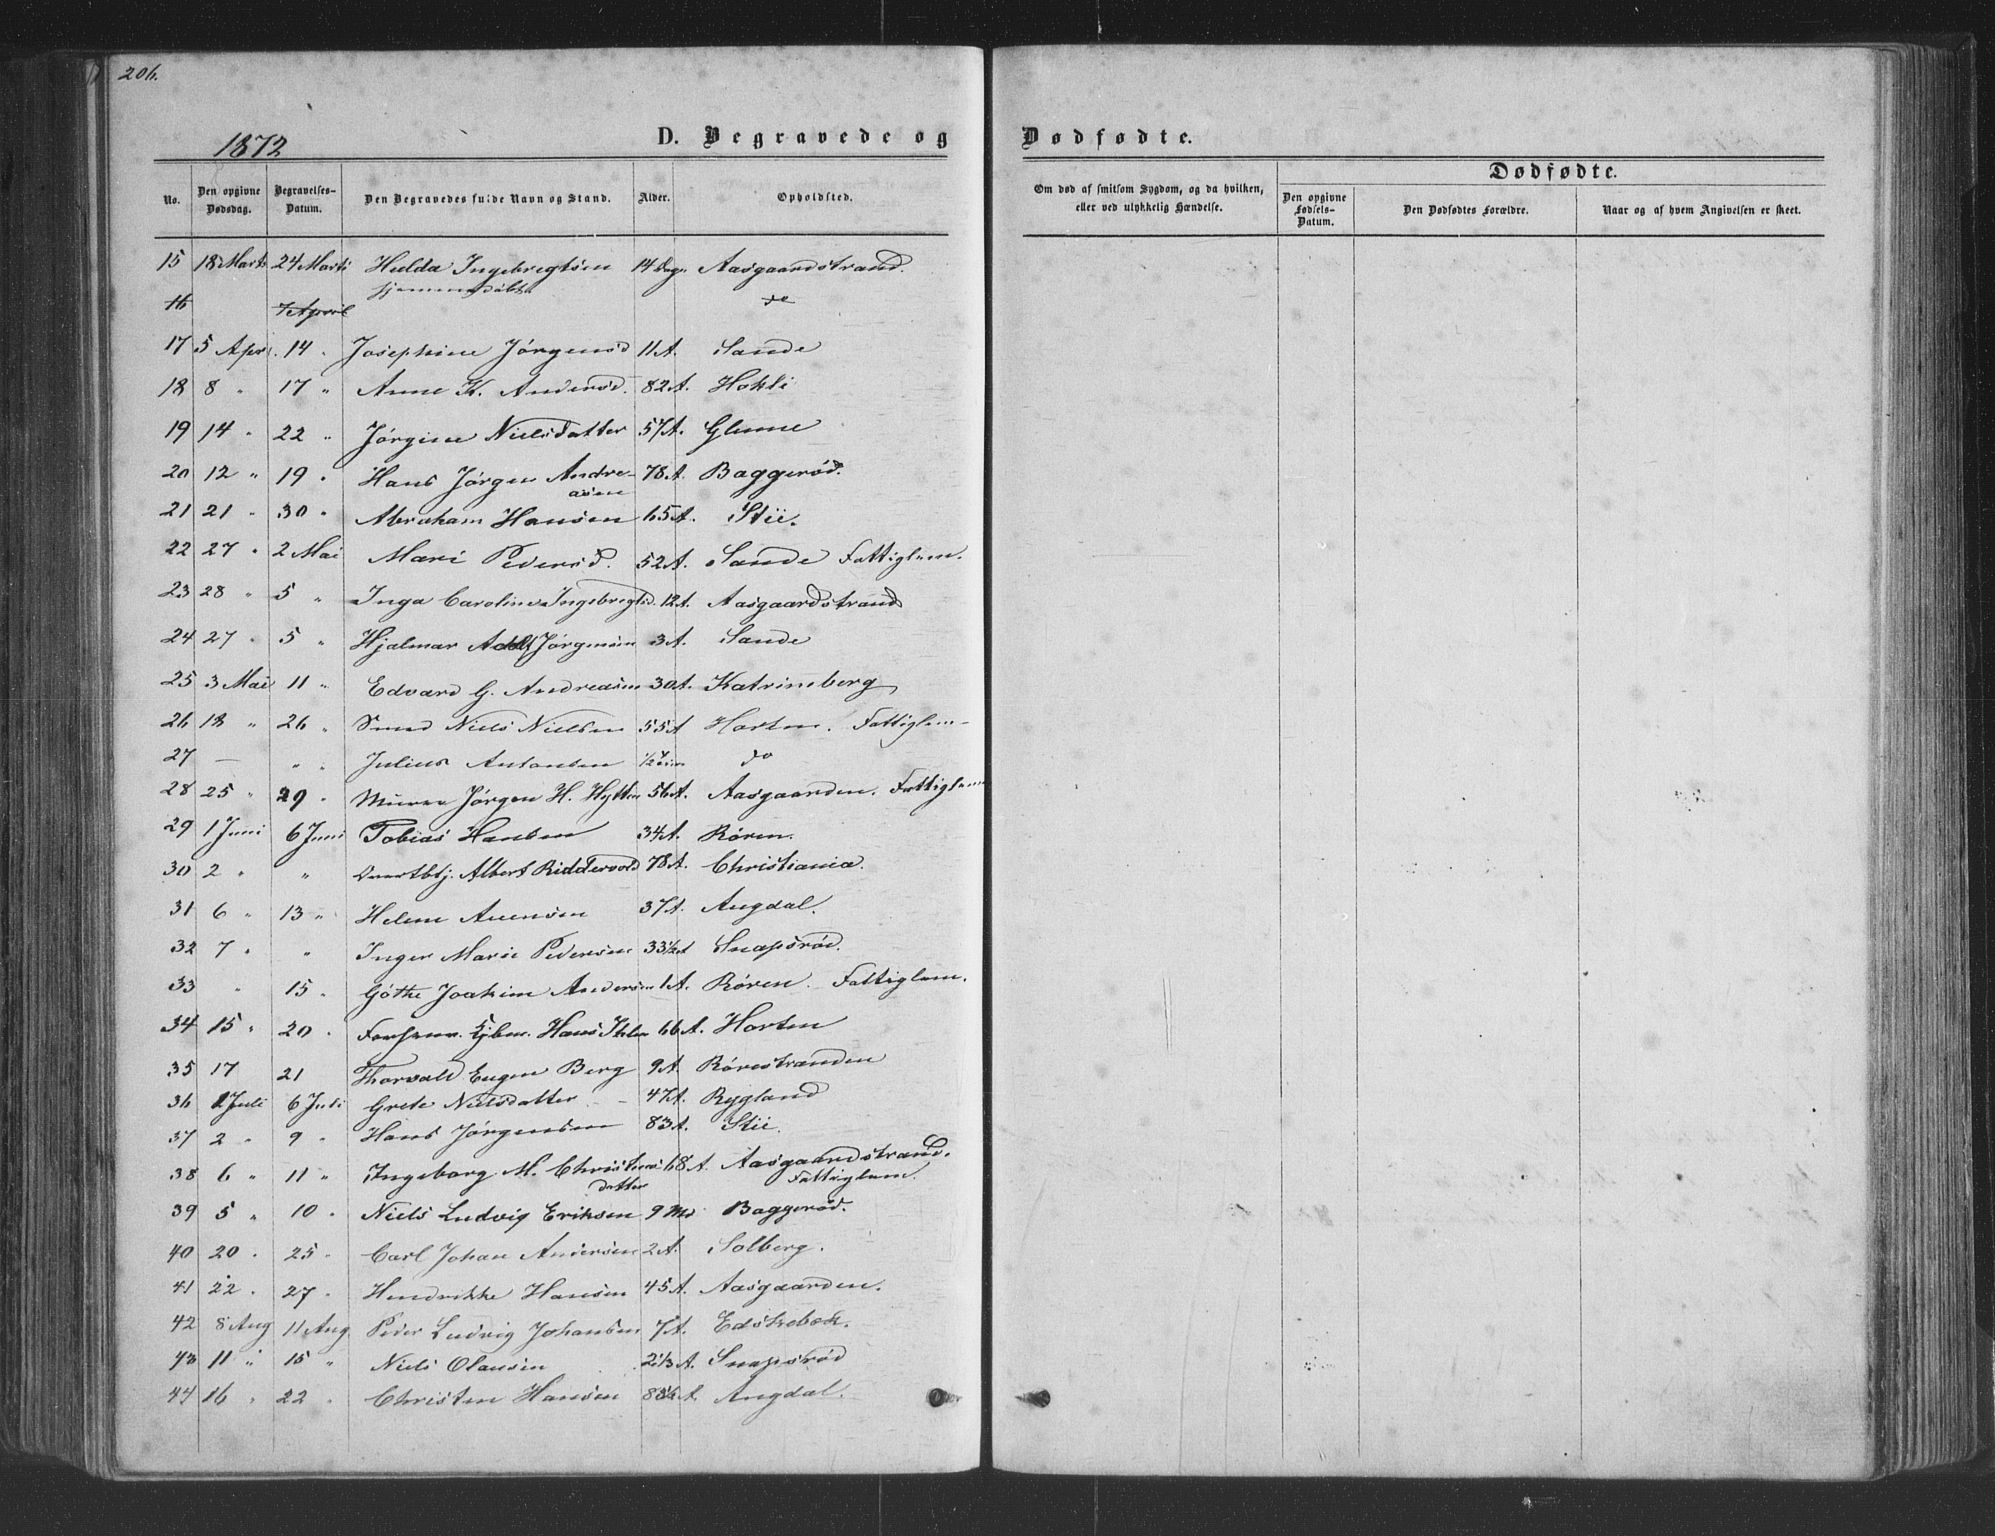 206.
1872
D. Begravede og
Dødfødte.
No. Den opgivne Dødsdag. Begravelses-Datum. Den Begravedes fulde Navn og Stand. Alder. Opholdsted.
Om død af smitsom Sygdom, og da hvilken, eller ved ulykkelig Hændelse.
Dødfødte.
Den opgivne Fødsels-Datum. Den Dødfødtes Forældre. Naar og af hvem Angivelsen er skeet.
15 18 Marts 24 Marts Hulda Ingebregtsen 14 Dage Aasgaardstrand.
hjemmedøbt
16 7 April do
17 5 Apr. 14 " Josephine Jørgensd 11 A. Sande
18 8 " 17 " Anne K. Andersd. 82 A. Hokli
19 14 " 22 " Jørgine Nielsdatter 57 A. Glume
20 12 " 19 " Hans Jørgen Andre-
asen 78 A. Baggerød.
21 21 " 30 " Abraham Hansen 65 A. Stii.
22 27 " 2 Mai Mari Pedersd. 52 A. Sande Fattiglem.
23 28 " 5 " Inga Caroline Ingebregtsd 12 A. Aasgaardstrand
24 27 " 5 " Hjalmar Adolf Jørgensen 3 A. Sande
25 3 Mai 11 " Edvard G. Andreasen 30 A. Katrineberg
26 18 " 26 " Smed Niels Nielsen 55 A Horten. Fattiglem
27 — " " Julius Antonsen 1/2 do
28 25 " 29 " Murer Jørgen H. Hytten 56 A. Aasgaarden. Fattiglem
29 1 Juni 6 Juni Tobias Hansen 34 A. Røren.
30 2 " " Albert Riddervold 78 A. Christiania.
31 6 " 13 " Helene Anensen 37 A. Angdal.
32 7 " " Inger Marie Pedersen 33 1/2 A Snapsrød.
33 " 15 " Gøthe Joakim Andersen 1 A. Røren. Fattiglem.
34 15 " 20 " Hans 66 A. Horten
35 17 21 Thorvald Eugen Berg 9 A. Rørestranden
36 2 Juli 6 Juli Grete Nielsdatter 47 A. Rygland
37 2 " 9 " Hans Jørgensen 83 A. Stii.
38 6 " 11 " Ingeborg M. Christens
datter 68 A. Aasgaardstrand.
Fattiglem.
39 5 " 10 " Niels Ludvig Eriksen 9 Md Baggerød.
40 20 " 25 " Carl Johan Andersen 2 A. Solberg.
41 22 " 27 " Hendrikke Hansen 45 A. Aasgaarden.
42 8 Aug 11 Aug Peder Ludvig Johansen 7 A. Edskebæk.
43 11 " 15 " Niels Olausen 2 1/3 A. Snapsrød
44 16 " 22 " Christen Hansen A. Angdal.